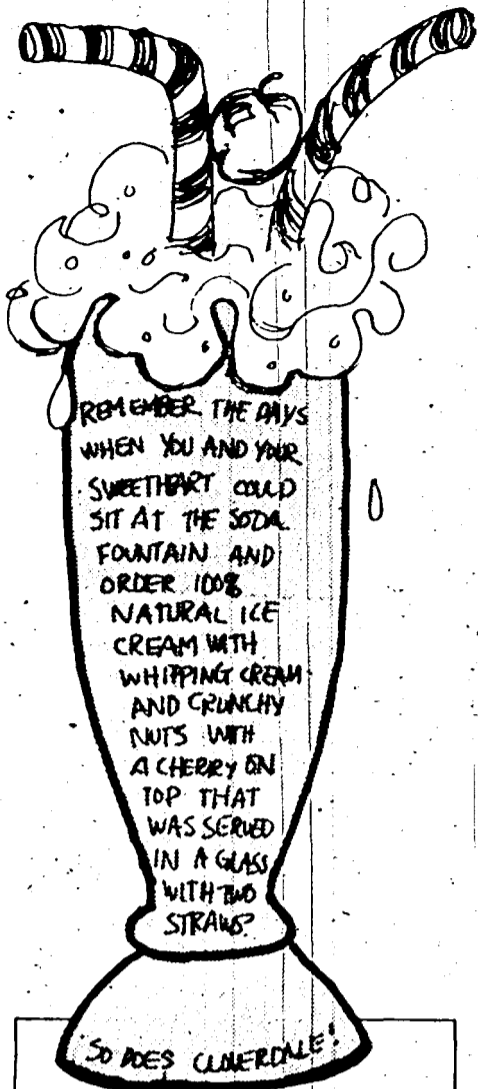 REMEMBER THE DAYS
WHEN YOU AND YOUR
SWEETHEART COULD
SIT AT THE SODA
FOUNTAIN AND
ORDER 100%
NATURAL ICE
CREAM WITH
WHIPPING CREAM
AND CRUNCHY
NUTS WITH
A CHERRY ON
TOP THAT
WAS SERVED
IN A GLASS
WITH TWO
STRAWS?
SO DOES CLOVERDALE!